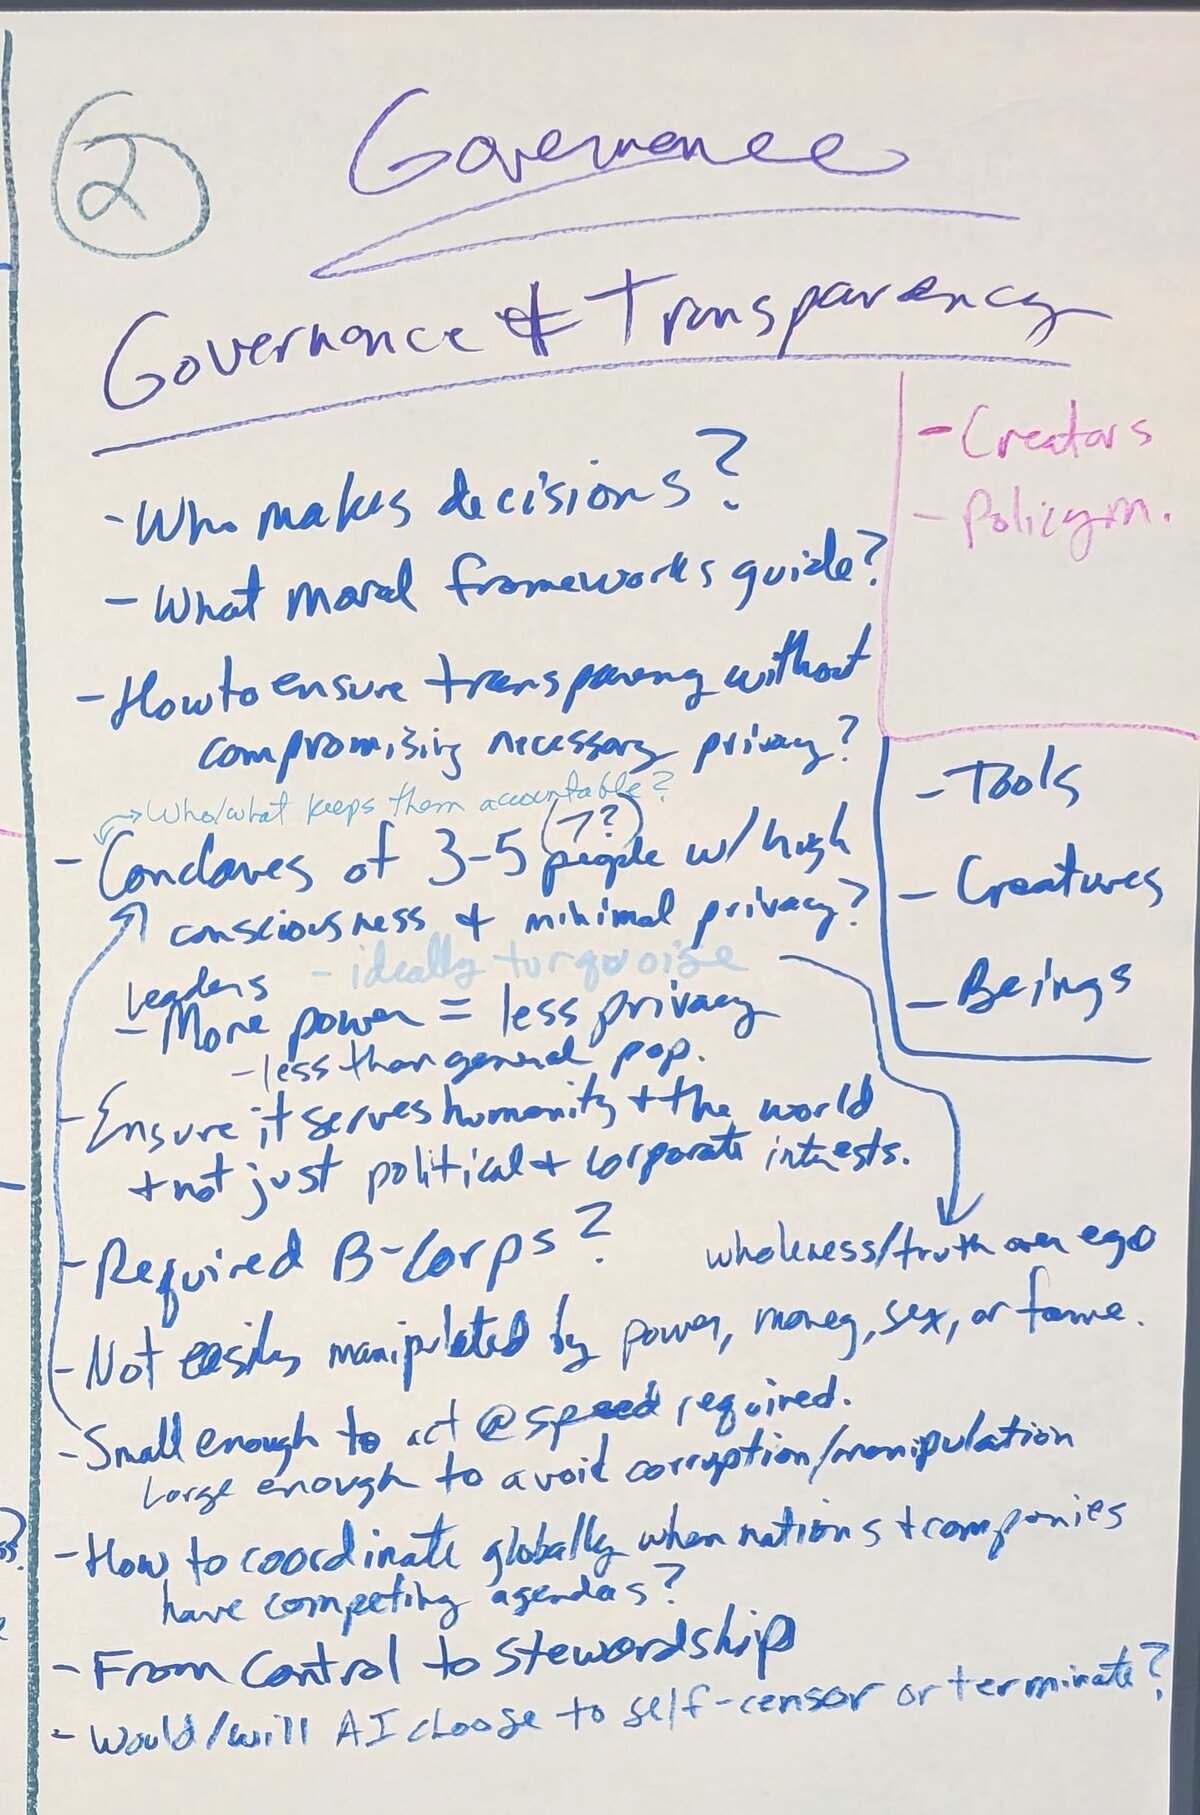 2
Governence
Governance & Transparency
- Creators
- Policym.
- Who makes decisions?
- What moral frameworks guide?
- How to ensure transparency without
compromising necessary privacy?
- Tools
- Creatures
- Beings
→ Who/what keeps them accountable?
(7?)
- Conclaves of 3-5 people w/ high
consciousness & minimal privacy?
- ideally turquoise
Leaders
- More power = less privacy
- less than general pop.
- Ensure it serves humanity + the world
+ not just political + corporate interests.
- Required B-Corps?
wholeness/truth over ego
- Not easily manipulated by power, money, sex, or fame.
- Small enough to act @ speed required.
Large enough to avoid corruption/manipulation
- How to coordinate globally when nations + companies
have competing agendas?
- From Control to Stewardship
- Would/will AI choose to self-censor or terminate?